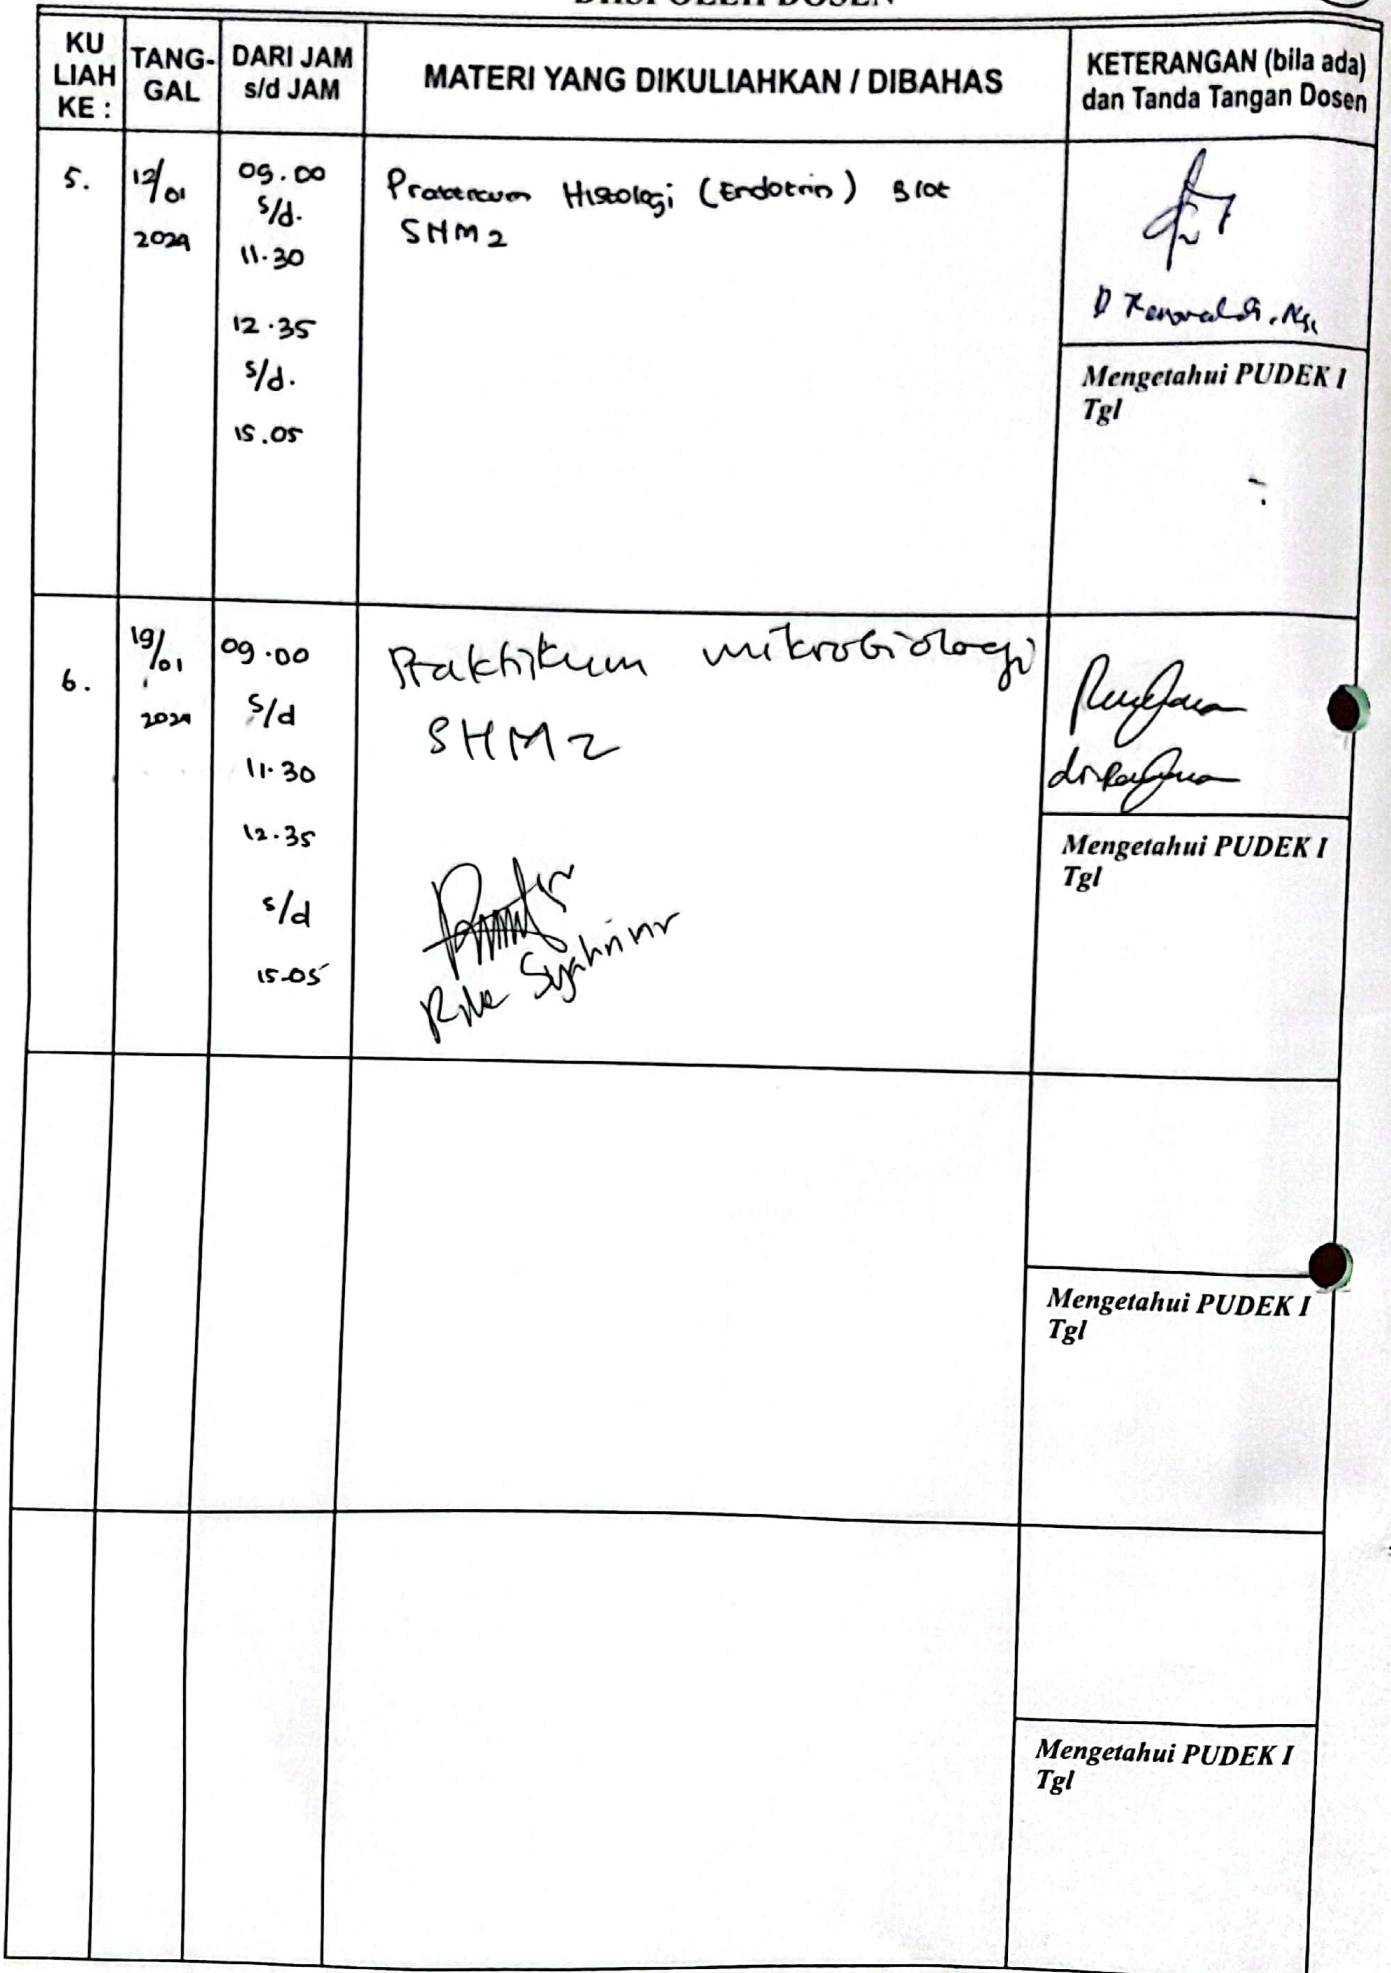 KU LIAH KE :
TANG-GAL
DARI JAM s/d JAM
MATERI YANG DIKULIAHKAN / DIBAHAS
KETERANGAN (bila ada) dan Tanda Tangan Dosen
5.
12/01
2024
09.00
s/d.
11.30
12.35
s/d.
15.05
Histologi (Endokrin) Blok
SHM2
Mengetahui PUDEK I
Tgl
6.
19/01
2024
09.00
s/d
11.30
12.35
s/d
15.05
Praktikum mikrobiologi
SHM2
Mengetahui PUDEK I
Tgl
Mengetahui PUDEK I
Tgl
Mengetahui PUDEK I
Tgl